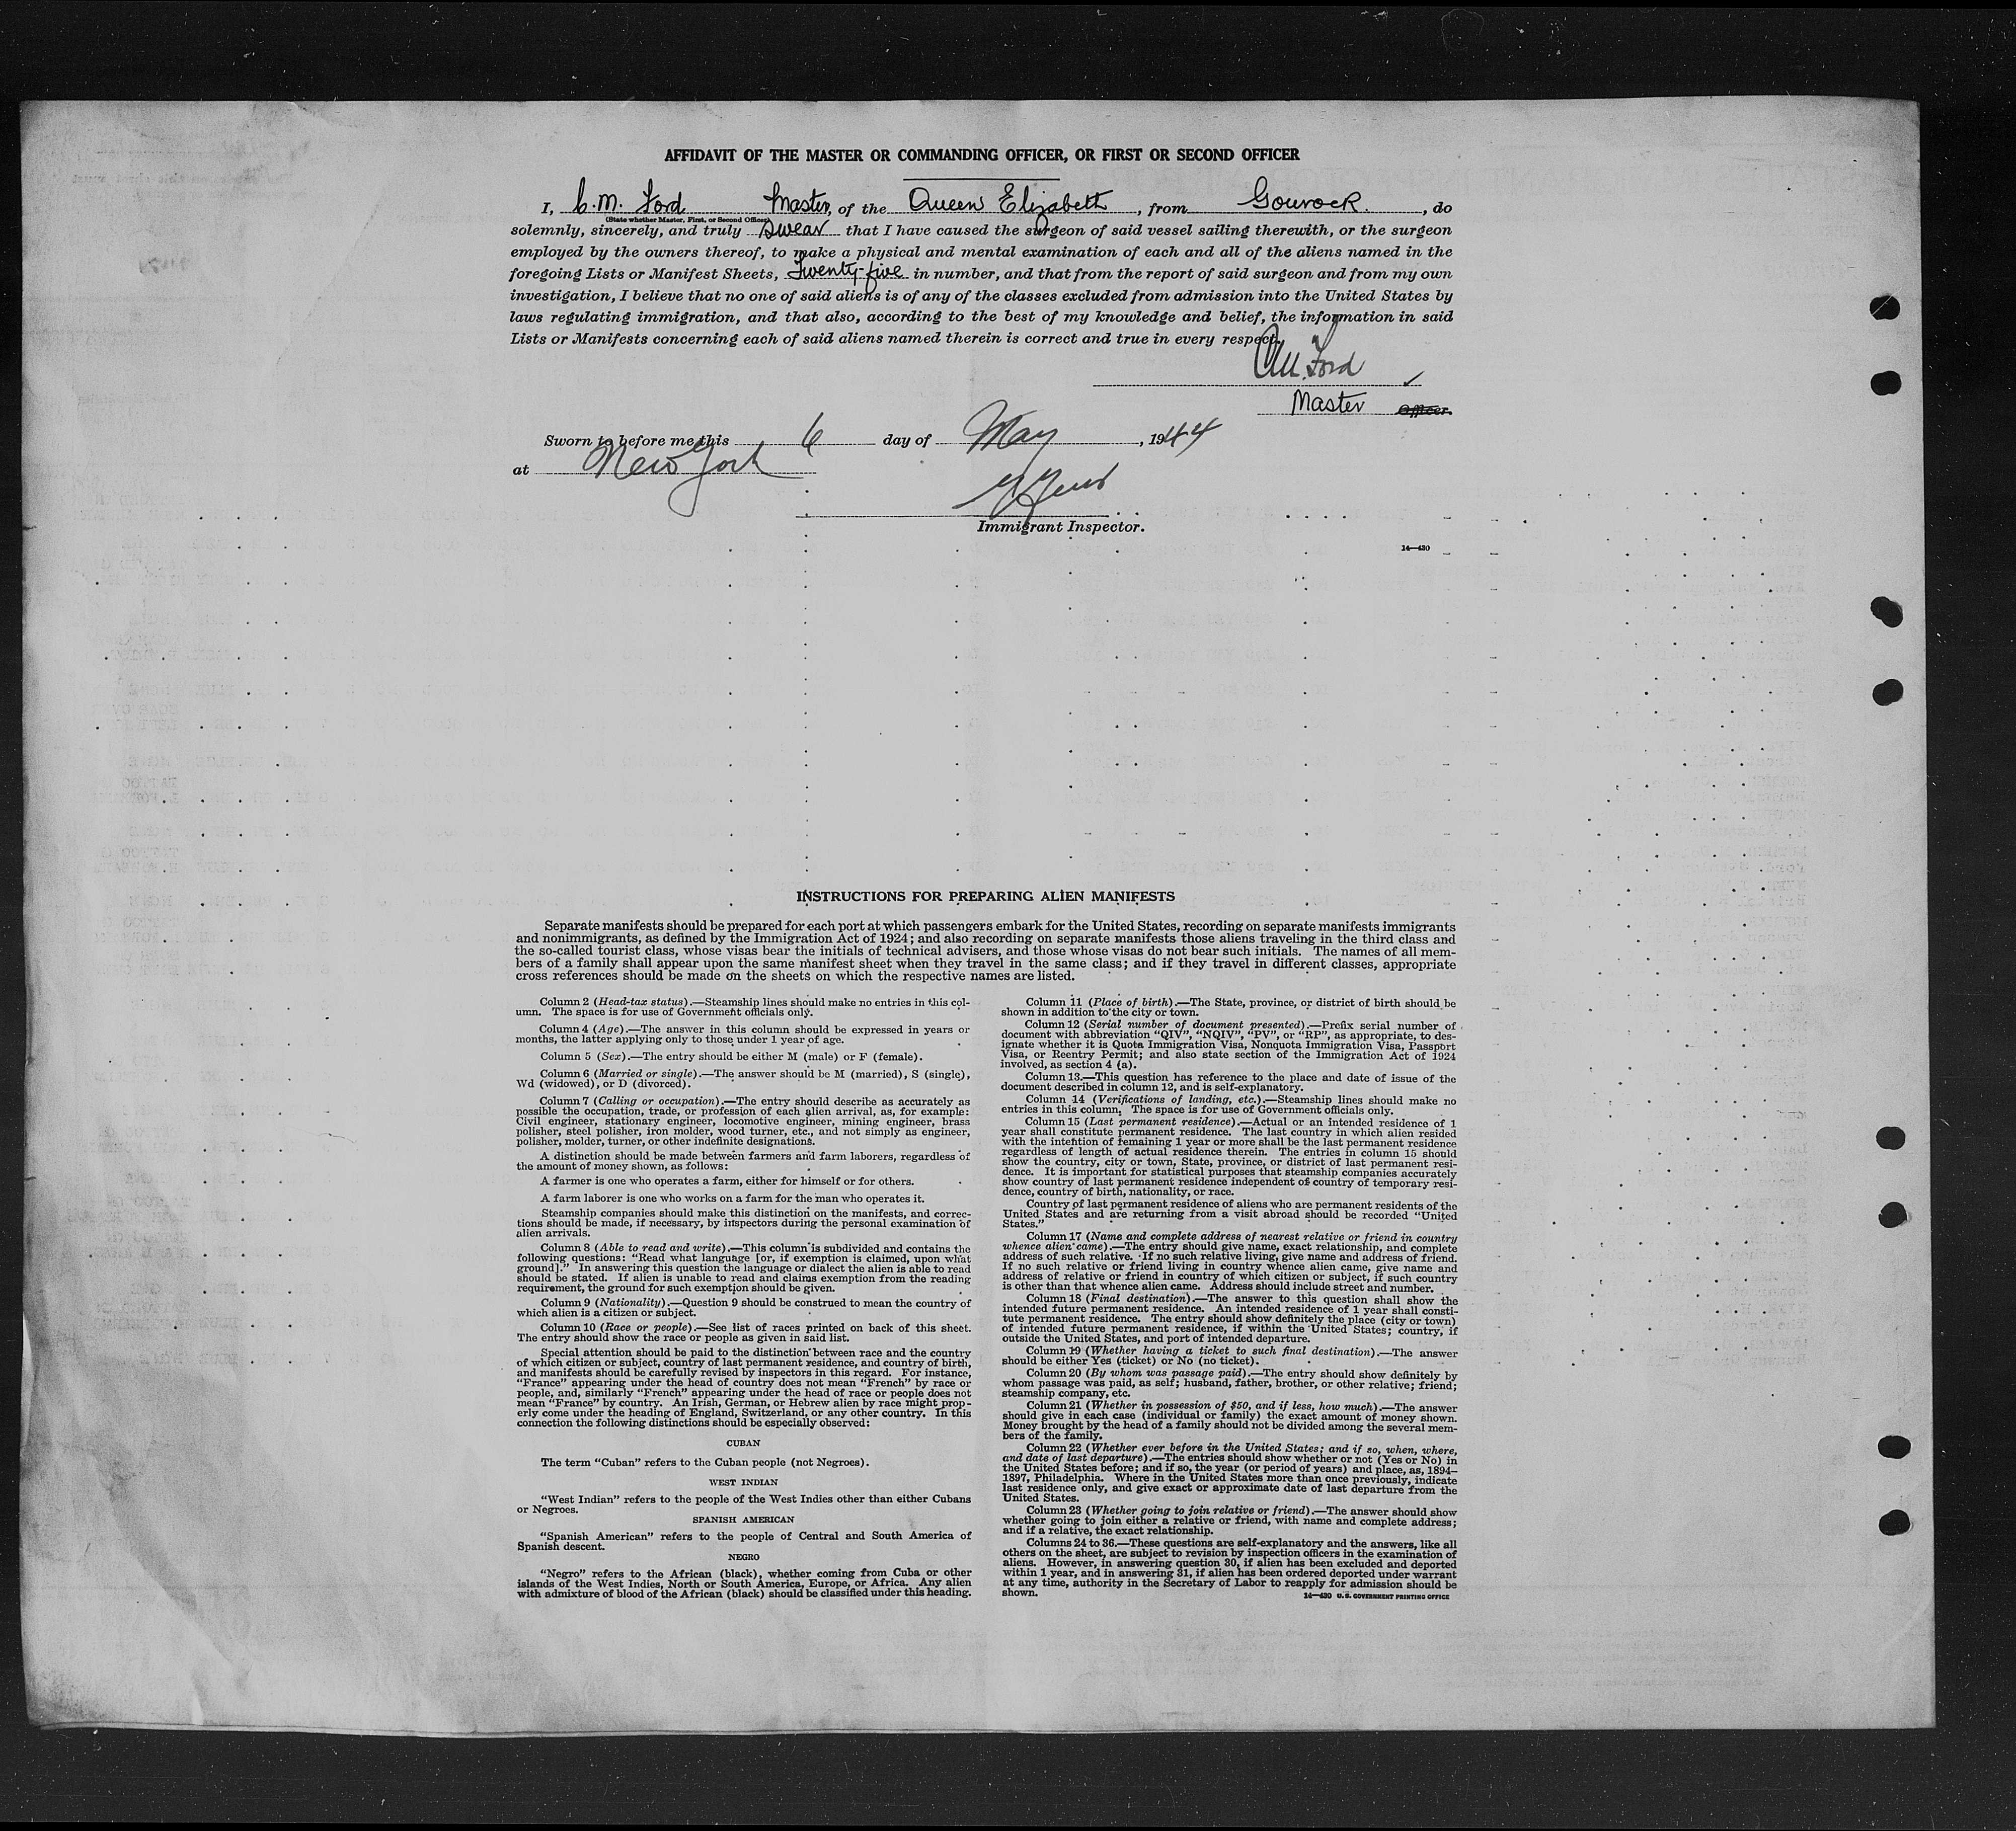 AFFIDAVIT OF THE MASTER OR COMMANDING OFFICER, OR FIRST OR SECOND OFFICER
I, C. M. Ford Master, of the Queen Elizabeth, from Gourock., do
(State whether Master, First, or Second Officer)
solemnly, sincerely, and truly swear that I have caused the surgeon of said vessel sailing therewith, or the surgeon
employed by the owners thereof, to make a physical and mental examination of each and all of the aliens named in the
foregoing Lists or Manifest Sheets, Twenty-five in number, and that from the report of said surgeon and from my own
investigation, I believe that no one of said aliens is of any of the classes excluded from admission into the United States by
laws regulating immigration, and that also, according to the best of my knowledge and belief, the information in said
Lists or Manifests concerning each of said aliens named therein is correct and true in every respect.
C.M. Ford
Master Officer.
Sworn to before me this 6 day of May, 1944
at New York
Immigrant Inspector.
14—430
INSTRUCTIONS FOR PREPARING ALIEN MANIFESTS
Separate manifests should be prepared for each port at which passengers embark for the United States, recording on separate manifests immigrants
and nonimmigrants, as defined by the Immigration Act of 1924; and also recording on separate manifests those aliens traveling in the third class and
the so-called tourist class, whose visas bear the initials of technical advisers, and those whose visas do not bear such initials. The names of all mem-
bers of a family shall appear upon the same manifest sheet when they travel in the same class; and if they travel in different classes, appropriate
cross references should be made on the sheets on which the respective names are listed.
Column 2 (Head-tax status).—Steamship lines should make no entries in this col-
umn. The space is for use of Government officials only.
Column 4 (Age).—The answer in this column should be expressed in years or
months, the latter applying only to those under 1 year of age.
Column 5 (Sex).—The entry should be either M (male) or F (female).
Column 6 (Married or single).—The answer should be M (married), S (single),
Wd (widowed), or D (divorced).
Column 7 (Calling or occupation).—The entry should describe as accurately as
possible the occupation, trade, or profession of each alien arrival, as, for example:
Civil engineer, stationary engineer, locomotive engineer, mining engineer, brass
polisher, steel polisher, iron molder, wood turner, etc., and not simply as engineer,
polisher, molder, turner, or other indefinite designations.
A distinction should be made between farmers and farm laborers, regardless of
the amount of money shown, as follows:
A farmer is one who operates a farm, either for himself or for others.
A farm laborer is one who works on a farm for the man who operates it.
Steamship companies should make this distinction on the manifests, and correc-
tions should be made, if necessary, by inspectors during the personal examination of
alien arrivals.
Column 8 (Able to read and write).—This column is subdivided and contains the
following questions: "Read what language [or, if exemption is claimed, upon what
ground]." In answering this question the language or dialect the alien is able to read
should be stated. If alien is unable to read and claims exemption from the reading
requirement, the ground for such exemption should be given.
Column 9 (Nationality).—Question 9 should be construed to mean the country of
which alien is a citizen or subject.
Column 10 (Race or people).—See list of races printed on back of this sheet.
The entry should show the race or people as given in said list.
Special attention should be paid to the distinction between race and the country
of which citizen or subject, country of last permanent residence, and country of birth,
and manifests should be carefully revised by inspectors in this regard. For instance,
"France" appearing under the head of country does not mean "French" by race or
people, and, similarly "French" appearing under the head of race or people does not
mean "France" by country. An Irish, German, or Hebrew alien by race might prop-
erly come under the heading of England, Switzerland, or any other country. In this
connection the following distinctions should be especially observed:
CUBAN
The term "Cuban" refers to the Cuban people (not Negroes).
WEST INDIAN
"West Indian" refers to the people of the West Indies other than either Cubans
or Negroes.
SPANISH AMERICAN
"Spanish American" refers to the people of Central and South America of
Spanish descent.
NEGRO
"Negro" refers to the African (black), whether coming from Cuba or other
islands of the West Indies, North or South America, Europe, or Africa. Any alien
with admixture of blood of the African (black) should be classified under this heading.
Column 11 (Place of birth).—The State, province, or district of birth should be
shown in addition to the city or town.
Column 12 (Serial number of document presented).—Prefix serial number of
document with abbreviation "QIV", "NQIV", "PV", or "RP", as appropriate, to des-
ignate whether it is Quota Immigration Visa, Nonquota Immigration Visa, Passport
Visa, or Reentry Permit; and also state section of the Immigration Act of 1924
involved, as section 4 (a).
Column 13.—This question has reference to the place and date of issue of the
document described in column 12, and is self-explanatory.
Column 14 (Verifications of landing, etc.).—Steamship lines should make no
entries in this column. The space is for use of Government officials only.
Column 15 (Last permanent residence).—Actual or an intended residence of 1
year shall constitute permanent residence. The last country in which alien resided
with the intention of remaining 1 year or more shall be the last permanent residence
regardless of length of actual residence therein. The entries in column 15 should
show the country, city or town, State, province, or district of last permanent resi-
dence. It is important for statistical purposes that steamship companies accurately
show country of last permanent residence independent of country of temporary resi-
dence, country of birth, nationality, or race.
Country of last permanent residence of aliens who are permanent residents of the
United States and are returning from a visit abroad should be recorded "United
States."
Column 17 (Name and complete address of nearest relative or friend in country
whence alien came).—The entry should give name, exact relationship, and complete
address of such relative. If no such relative living, give name and address of friend.
If no such relative or friend living in country whence alien came, give name and
address of relative or friend in country of which citizen or subject, if such country
is other than that whence alien came. Address should include street and number.
Column 18 (Final destination).—The answer to this question shall show the
intended future permanent residence. An intended residence of 1 year shall consti-
tute permanent residence. The entry should show definitely the place (city or town)
of intended future permanent residence, if within the United States; country, if
outside the United States, and port of intended departure.
Column 19 (Whether having a ticket to such final destination).—The answer
should be either Yes (ticket) or No (no ticket).
Column 20 (By whom was passage paid).—The entry should show definitely by
whom passage was paid, as self; husband, father, brother, or other relative; friend;
steamship company, etc.
Column 21 (Whether in possession of $50, and if less, how much).—The answer
should give in each case (individual or family) the exact amount of money shown.
Money brought by the head of a family should not be divided among the several mem-
bers of the family.
Column 22 (Whether ever before in the United States; and if so, when, where,
and date of last departure).—The entries should show whether or not (Yes or No) in
the United States before; and if so, the year (or period of years) and place, as, 1894–
1897, Philadelphia. Where in the United States more than once previously, indicate
last residence only, and give exact or approximate date of last departure from the
United States.
Column 23 (Whether going to join relative or friend).—The answer should show
whether going to join either a relative or friend, with name and complete address;
and if a relative, the exact relationship.
Columns 24 to 36.—These questions are self-explanatory and the answers, like all
others on the sheet, are subject to revision by inspection officers in the examination of
aliens. However, in answering question 30, if alien has been excluded and deported
within 1 year, and in answering 31, if alien has been ordered deported under warrant
at any time, authority in the Secretary of Labor to reapply for admission should be
shown.
14—430 U.S. GOVERNMENT PRINTING OFFICE